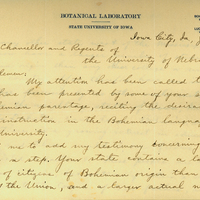 BOTANICAL LABORATORY
STATE UNIVERSITY OF IOWA
Iowa City, Ia,
Chancellor and Regents of
the University of Neb
lemen:
My attention has been called t
has been presented by some of your s
emian parentage, reciting the desira
instruction in the Bohemian languag
University.
me to add my testimony concerning
a step. Your state contains a la
of citizens of Bohemian origin than
f the Union, and a larger actual n